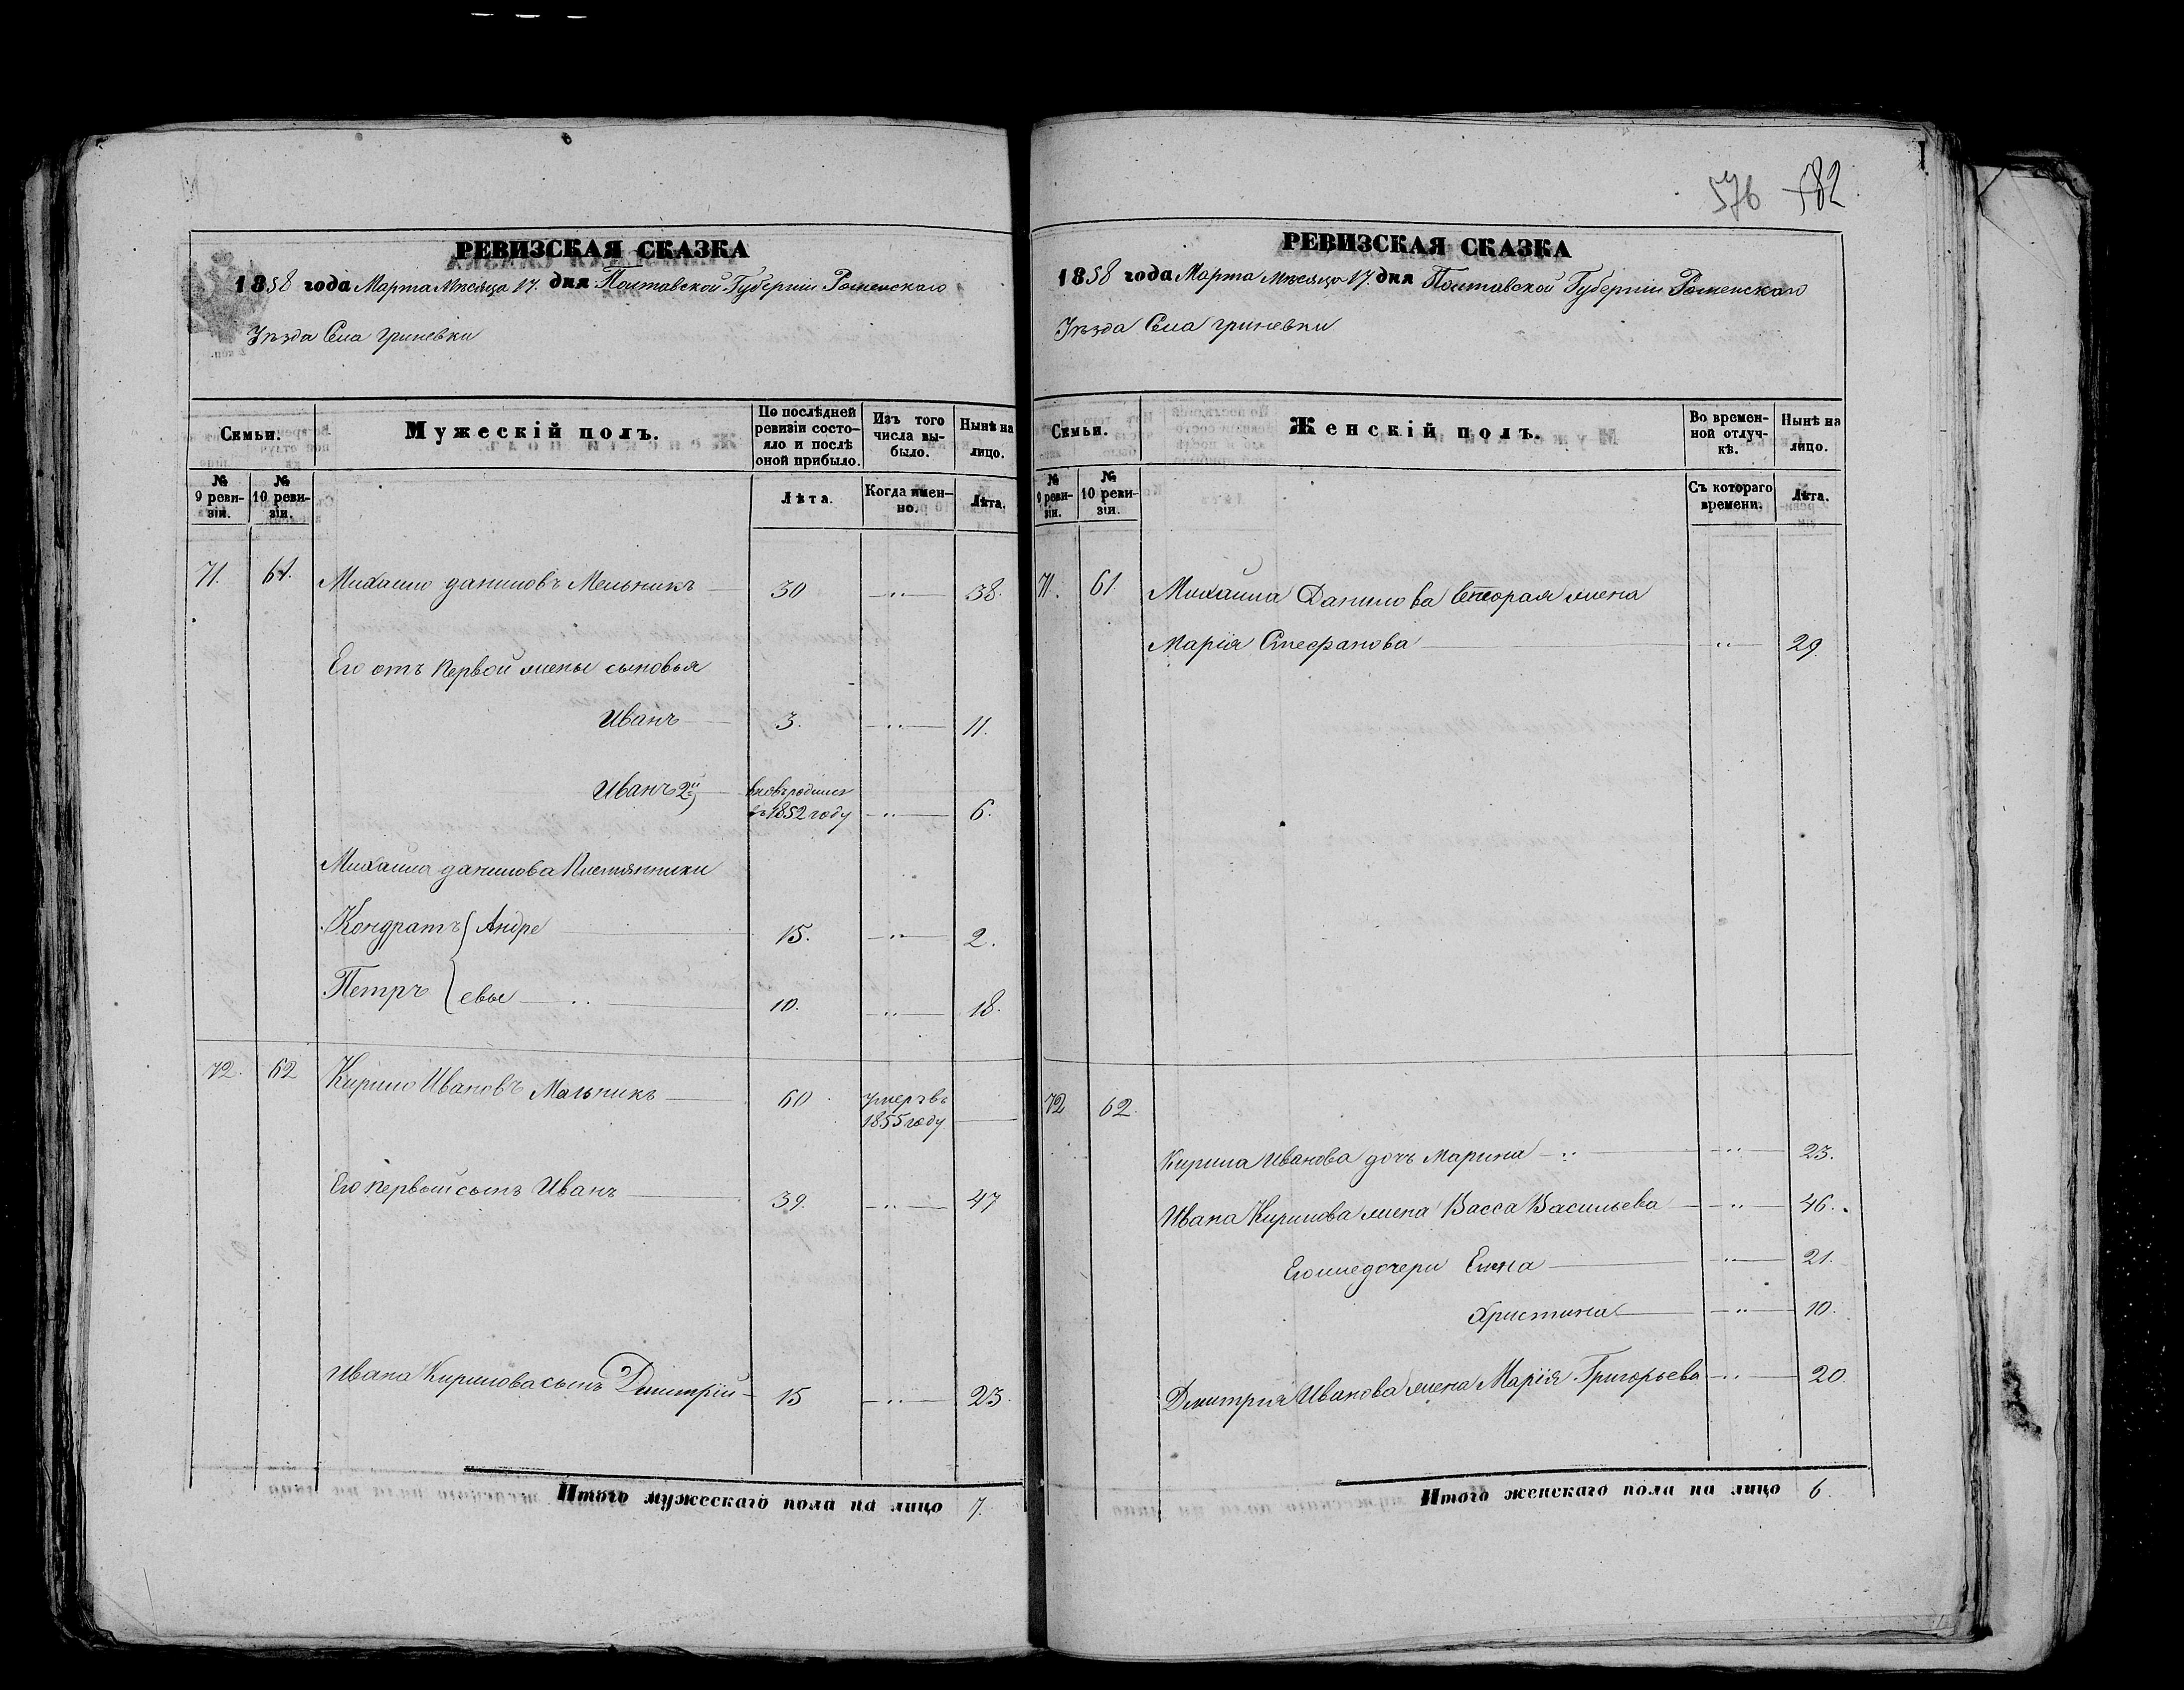 576 582
РЕВИЗСКАЯ СКАЗКА
1858 года Марта Мѣсяца 17. дня Полтавской Губерніи Роменскаго
Уѣзда Села Гриневки
Семьи.
Мужескій полъ.
По послѣдней ревизіи состояло и послѣ оной прибыло.
Изъ того числа выбыло.
Нынѣ на лицо.
№ 9 ревизіи.
№ 10 ревизіи.
Лѣта.
Когда именно.
Лѣта.
71. 61. Михайло Даниловъ Мельникъ 30 — " — 38.
Его отъ Первой жены сыновья
Иванъ 3. — " — 11.
Иванъ 2й вновьродился
въ 1852 году — " — 6.
Михайла Данилова Племянники
Кондратъ { Андре 15. — " — 2.
Петръ { евы 10. — " — 18.
72. 62 Кирило Ивановъ Мельникъ 60 умеръ въ
1855 году —
Его первый сынъ Иванъ 39. — " — 47
Ивана Кирилова сынъ Дмитрій 15 — " — 23.
Итого мужескаго пола на лицо 7.
РЕВИЗСКАЯ СКАЗКА
1858 года Марта Мѣсяца 17. дня Полтавской Губерніи Роменскаго
Уѣзда Села Гриневки
Семьи.
Женскій полъ.
Во временной отлучкѣ.
Нынѣ на лицо.
№ 9 ревизіи.
№ 10 ревизіи.
Съ котораго времени.
Лѣта.
71. 61. Михайла Данилова вторая жена
Марія Стефанова — " — 29.
72 62.
Кирила Иванова дочь Марина — " — 23.
Ивана Кирилова жена Васса Васильева — " — 46.
Его же дочери Елена — " — 21.
Христина — " — 10.
Дмитрія Иванова жена Марія Григорьева — " — 20.
Итого женскаго пола на лицо 6.